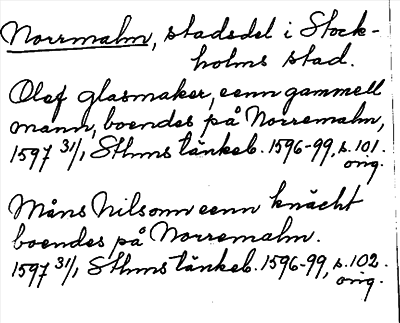 Norrmalm, stadsdel i Stock-
holms stad.
Olef glasmaker, eenn gammell
mann, boendes på Norremalm,
1597 31/1 Sthms tänkeb. 1596-99, s. 101.
orig.
Måns Nilsonn eenn knächt
boendes på Norremalm.
1597 31/1 Sthms tänkeb. 1596-99, s. 102.
orig.